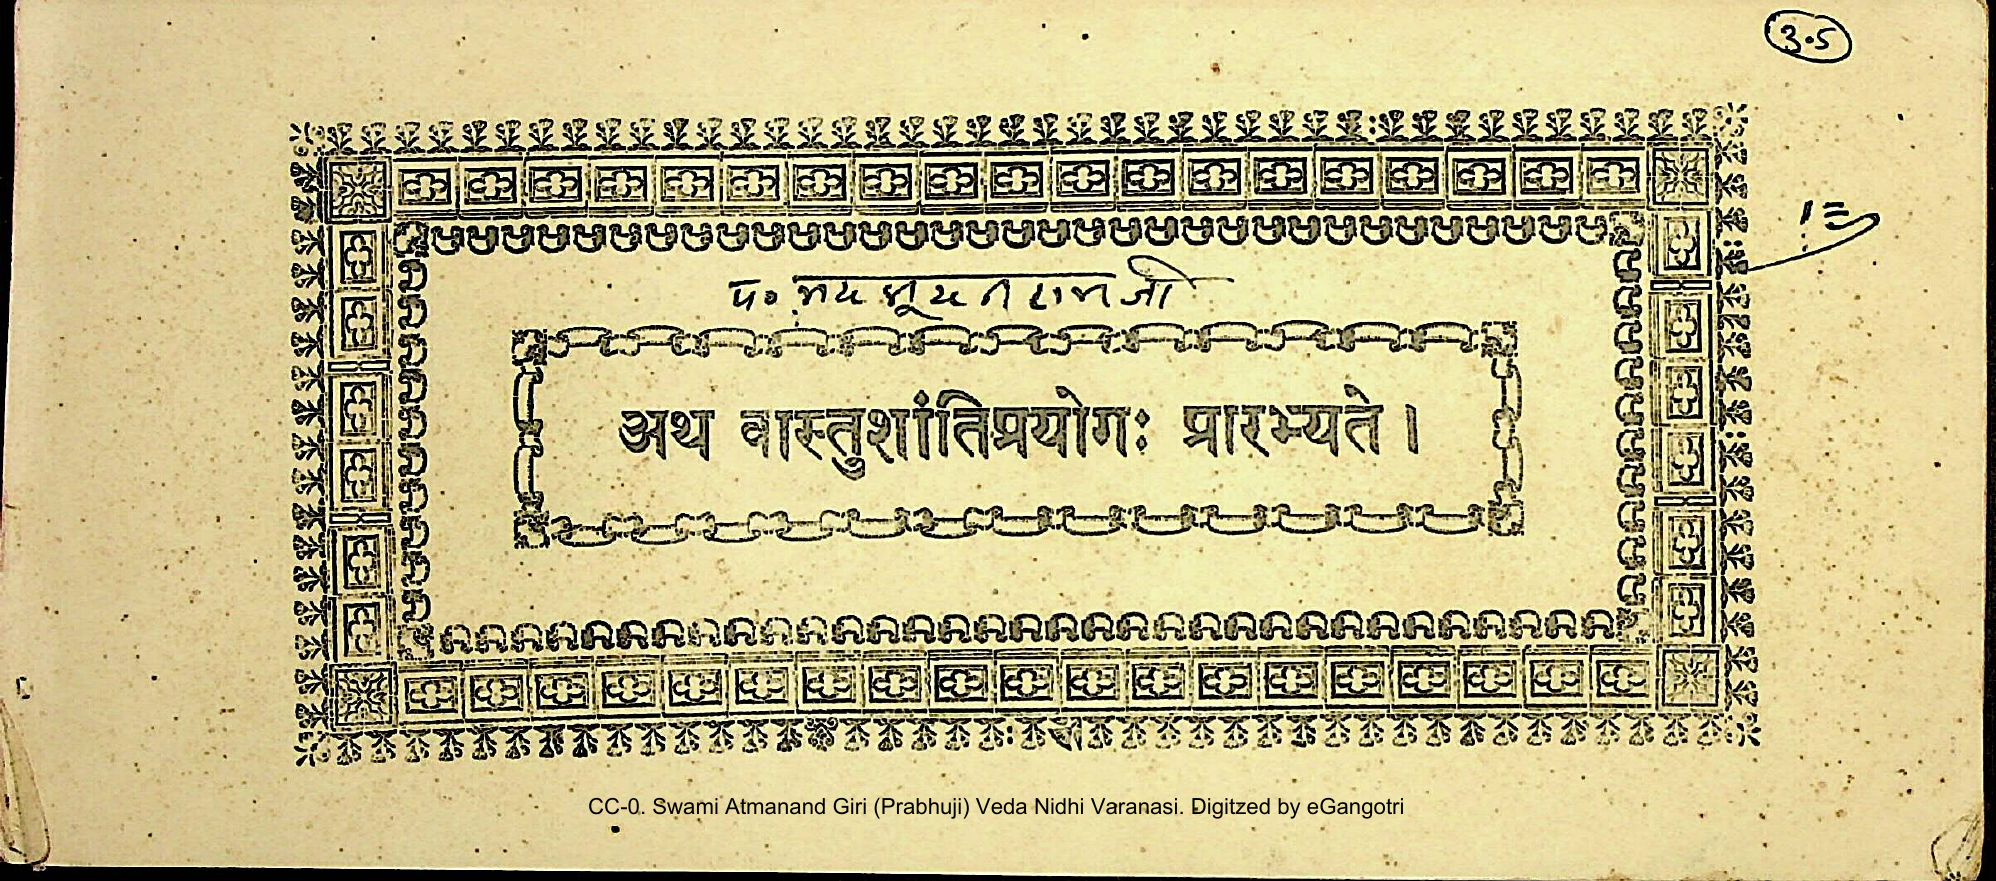 3.5
प०
अथ वास्तुशांतिप्रयोगः प्रारभ्यते ।
CC-0. Swami Atmanand Giri (Prabhuji) Veda Nidhi Varanasi. Digitzed by eGangotri